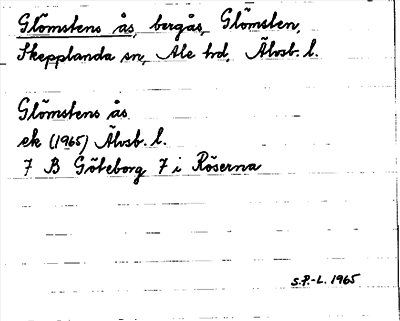 Glömstens ås, bergås, Glömsten,
Skepplanda sn, Ale hd, Älvsb. l.
Glömstens ås
ek (1965) Älvsb. l.
7 B Göteborg 7 i Röserna
S.P.-L. 1965